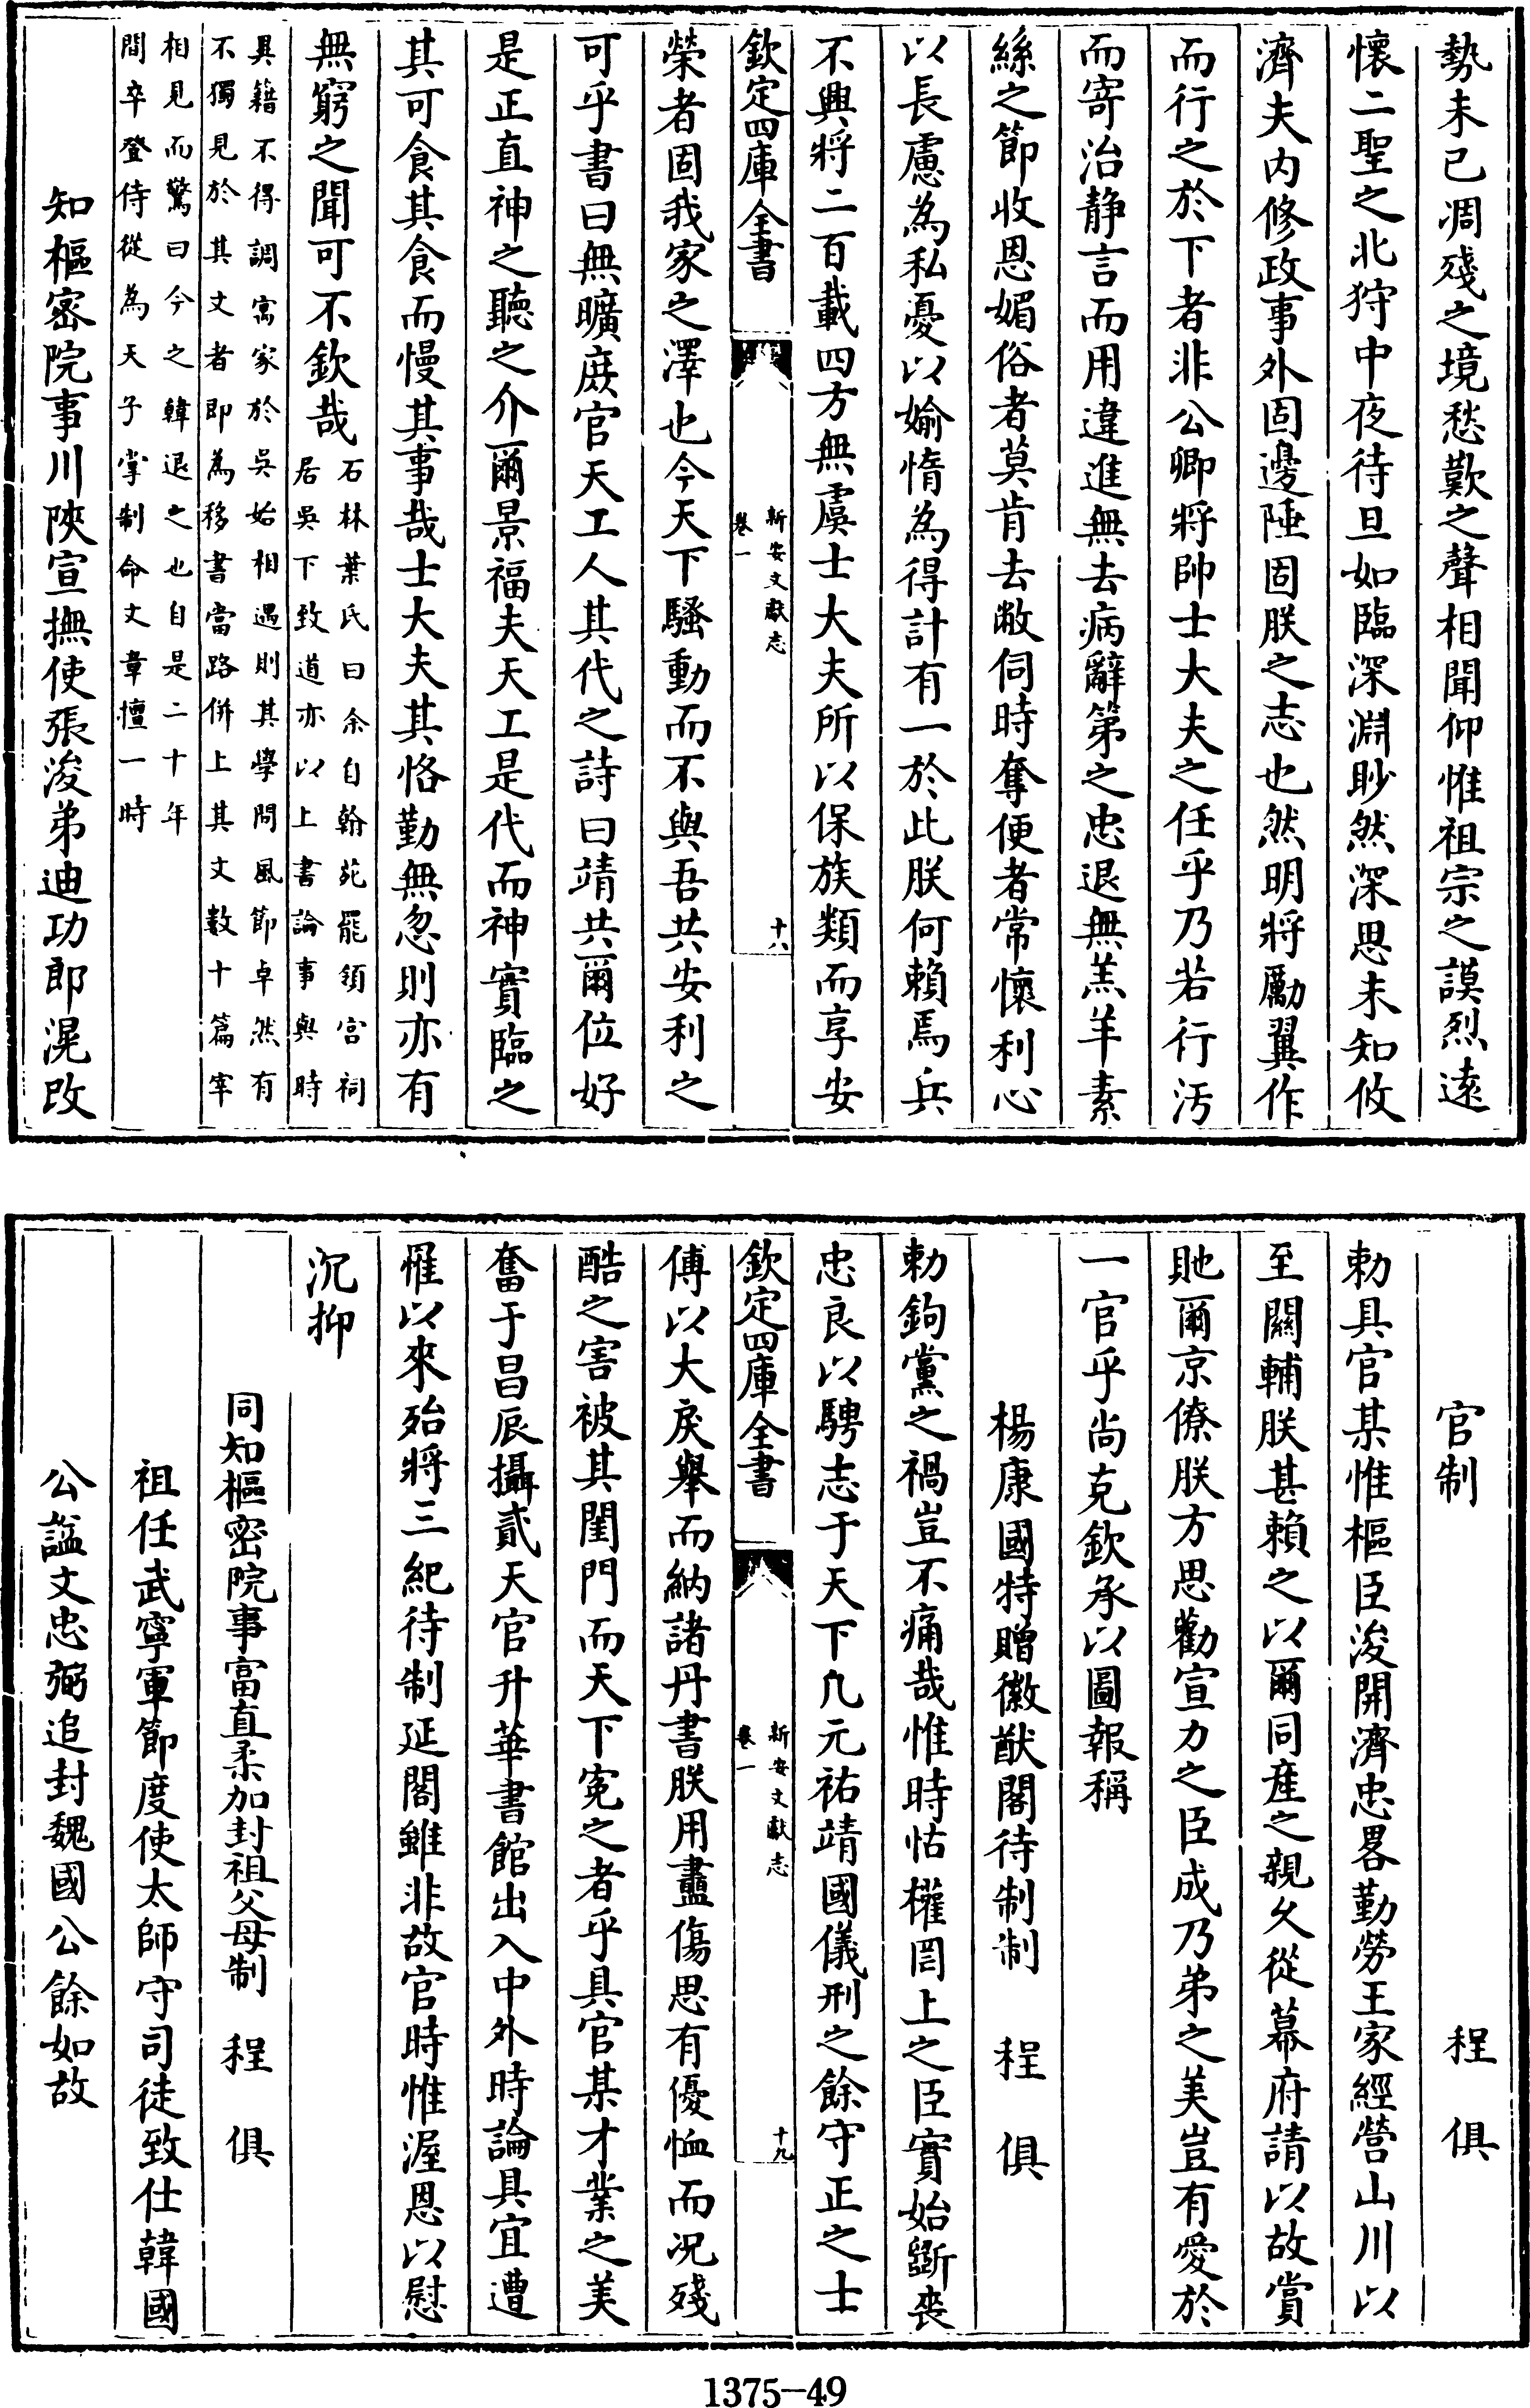 勢未已凋殘之境愁歎之聲相聞仰惟祖宗之謨烈遠
懷二聖之北狩中夜待旦如臨深淵眇然深思未知攸
濟夫内修政事外固邊陲固朕之志也然明將勵翼作
而行之於下者非公卿將帥士大夫之任乎乃若行汚
而寄治静言而用違進無去病辭第之忠退無羔羊素
絲之節收恩媚俗者莫肯去敝伺時奪便者常懷利心
以長慮為私憂以婾惰為得計有一於此朕何賴焉兵
不興將二百載四方無虞士大夫所以保族類而享安
欽定四庫全書
新安文獻志
卷一
十八
榮者固我家之澤也今天下騷動而不與吾共安利之
可乎書曰無曠庶官天工人其代之詩曰靖共爾位好
是正直神之聽之介爾景福夫天工是代而神實臨之
其可食其食而慢其事哉士大夫其恪勤無忽則亦有
無窮之聞可不欽哉
石林葉氏曰余自翰苑罷領宫祠
居吳下致道亦以上書論事與時
異籍不得調寓家於吳始相遇則其學問風節卓然有
不獨見於其文者即為移書當路併上其文數十篇宰
相見而驚曰今之韓退之也自是二十年
間卒登侍從為天子掌制命文章擅一時
知樞密院事川陜宣撫使張浚弟迪功郎滉改
官制
程俱
勅具官某惟樞臣浚開濟忠畧勤勞王家經營山川以
至關輔朕甚賴之以爾同産之親乆從幕府請以故賞
貤爾京僚朕方思勸宣力之臣成乃弟之美豈有愛於
一官乎尚克欽承以圖報稱
楊康國特贈徽猷閣待制制
程俱
勅鉤黨之禍豈不痛哉惟時怙權罔上之臣實始斲喪
忠良以騁志于天下凡元祐靖國儀刑之餘守正之士
欽定四庫全書
新安文獻志
卷一
十九
傅以大戾舉而納諸丹書朕用衋傷思有優恤而況殘
酷之害被其閨門而天下寃之者乎具官某才業之美
奮于昌辰攝貳天官升華書館出入中外時論具宜遭
罹以來殆將三紀待制延閣雖非故官時惟渥恩以慰
沉抑
同知樞密院事富直柔加封祖父母制
程俱
祖任武寧軍節度使太師守司徒致仕韓國
公諡文忠弼追封魏國公餘如故
1375-49